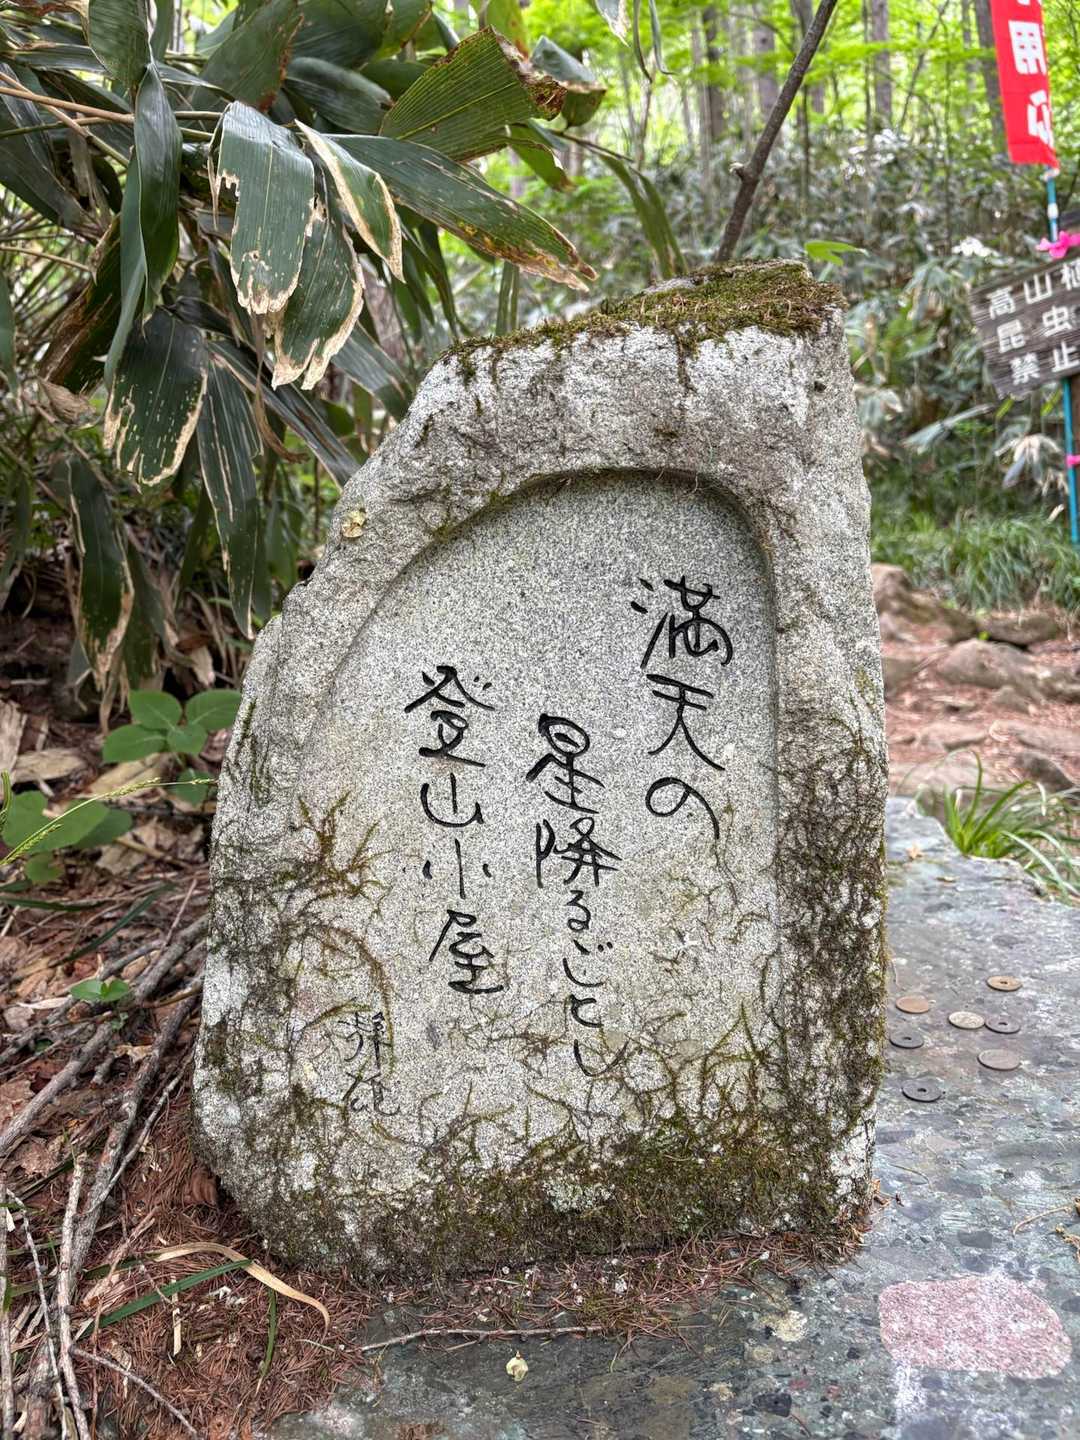 満天の
星降るごとし
登山小屋
昇龍
高山植
昆虫
禁止
用心